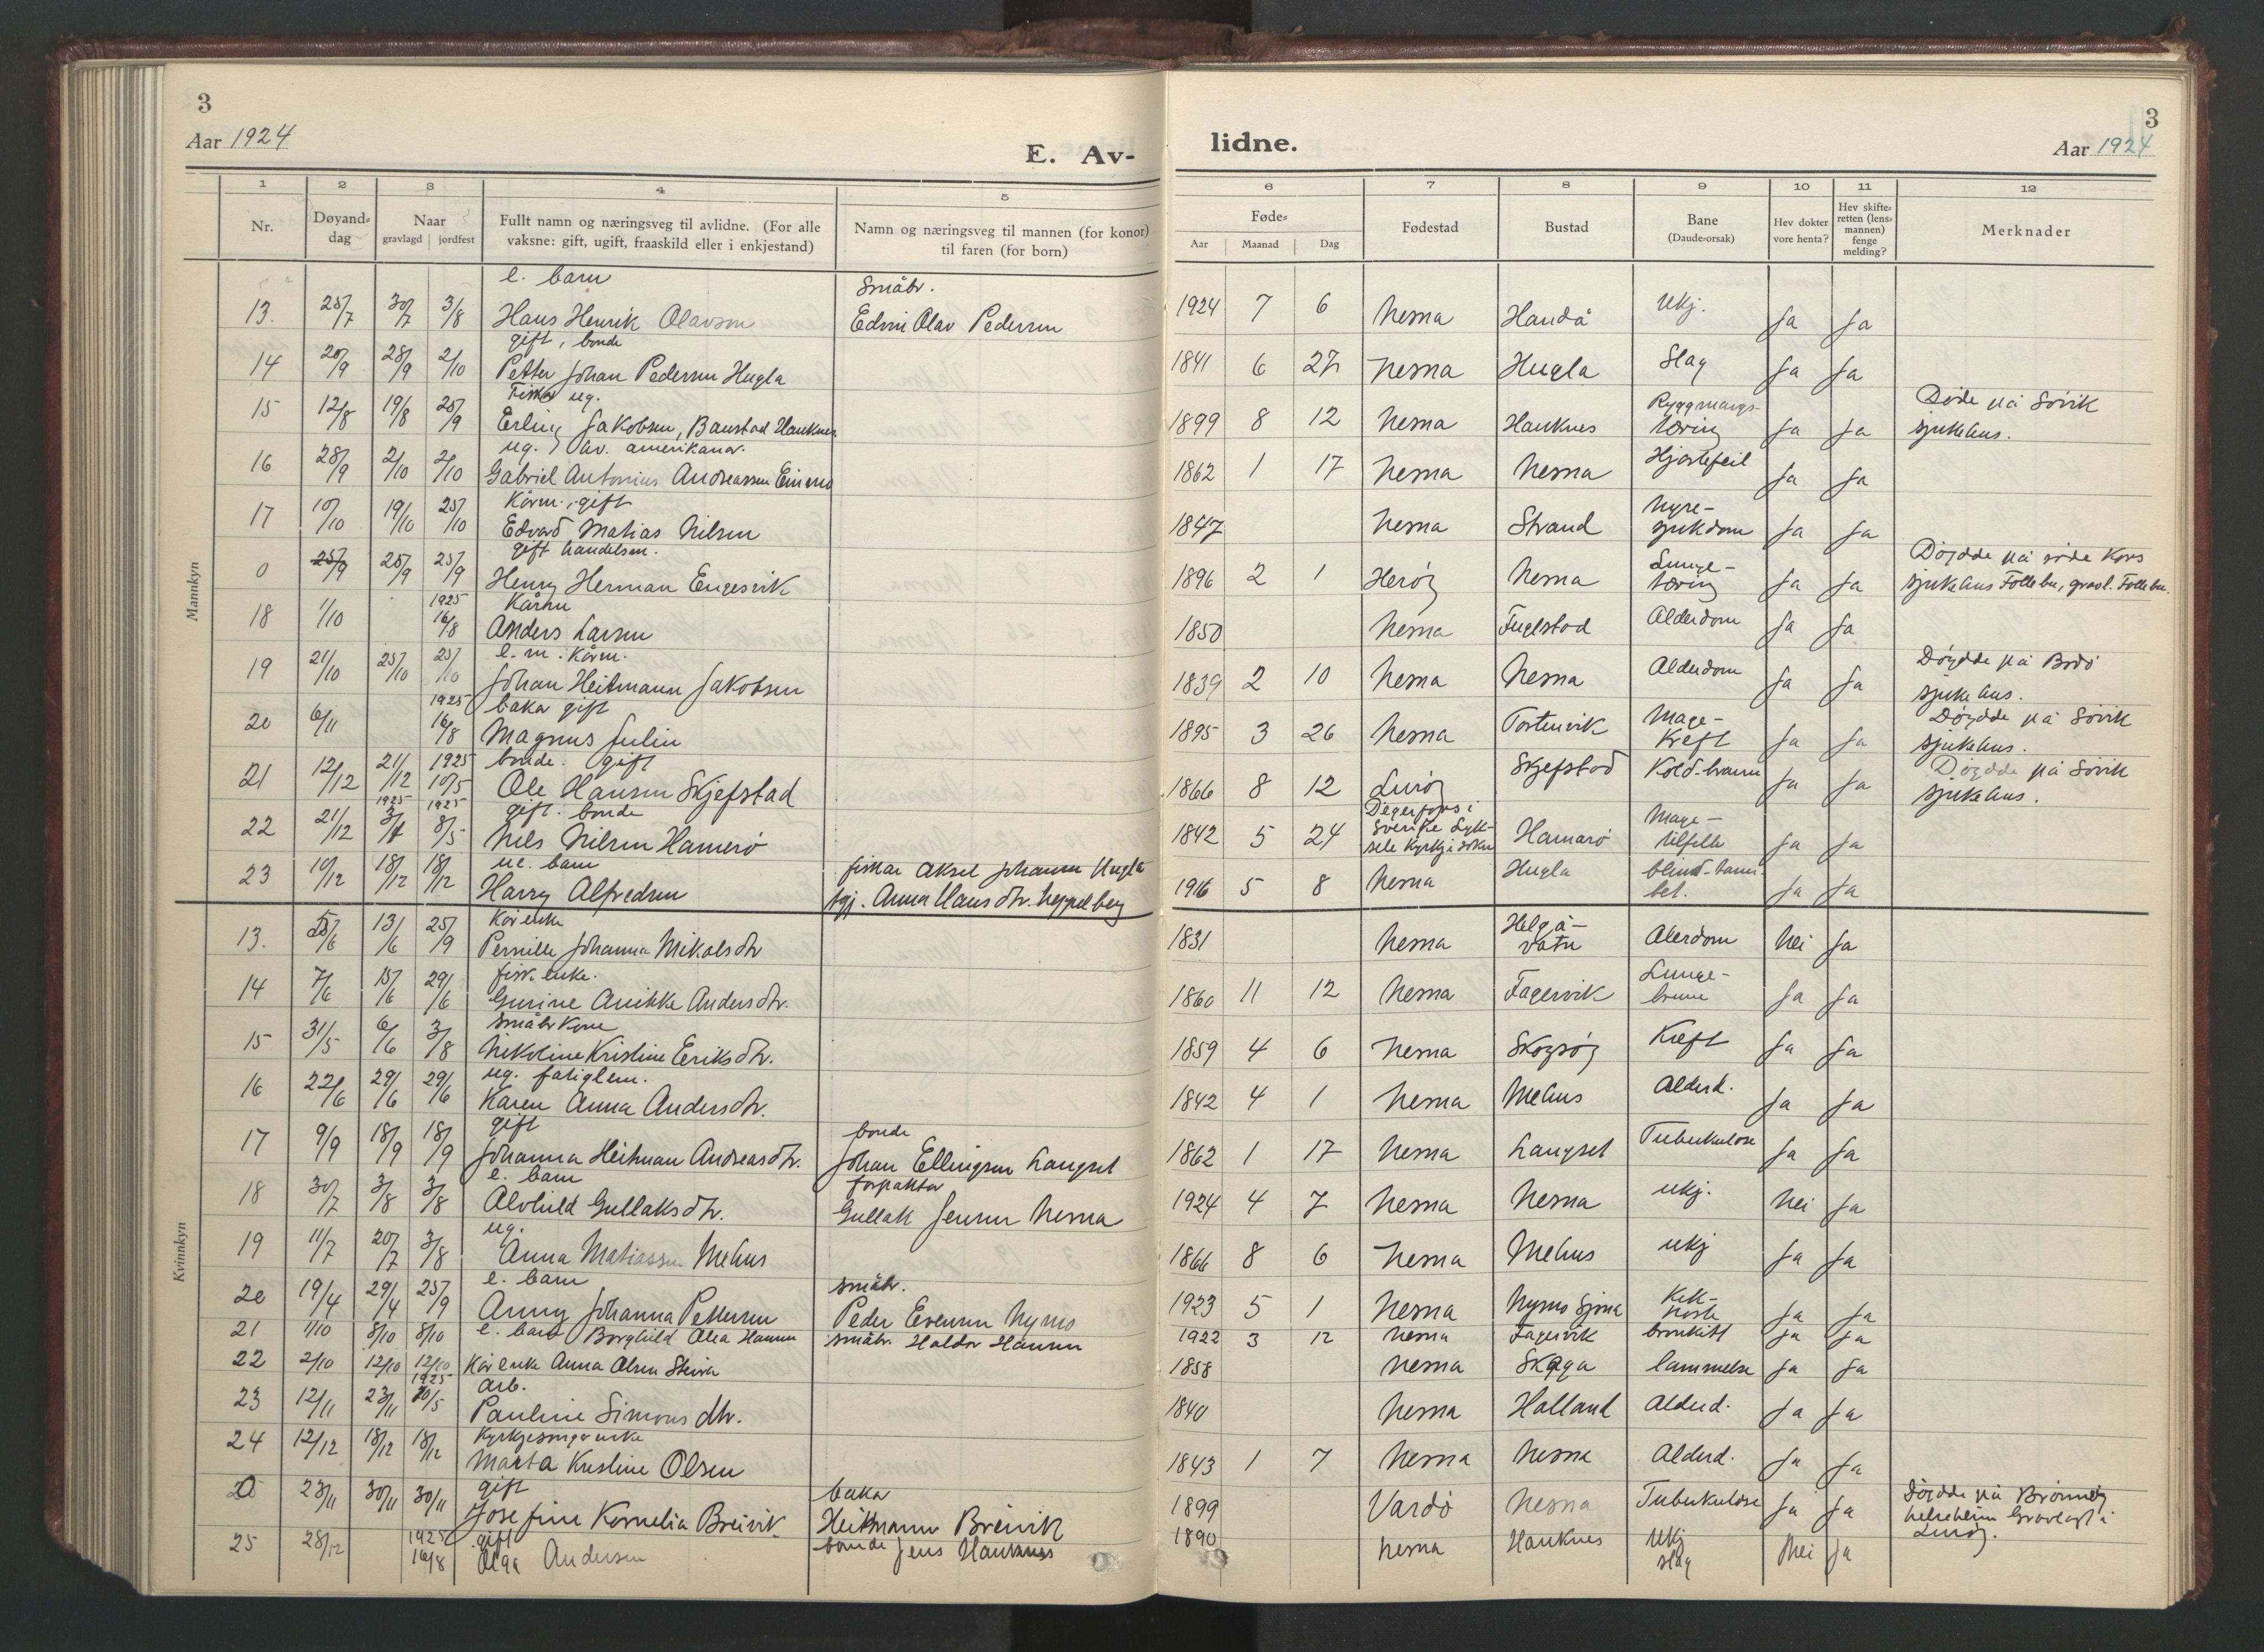 3
Aar 1924
E. Av-
lidne.
3
Aar 1924
1 2 3 4 5 6 7 8 9 10 11 12
Nr.
Døyand-
dag
Naar
gravlagd jordfest
Fullt namn og næringsveg til avlidne. (For alle
vaksne: gift, ugift, fraaskild eller i enkjestand)
Namn og næringsveg til mannen (for konor)
til faren (for born)
Føde-
Aar Maanad Dag
Fødestad
Bustad
Bane
(Daude-orsak)
Hev dokter
vore henta?
Hev skifte-
retten (lens-
mannen)
fenge
melding?
Merknader
Mannkyn
e. barn småbr.
13. 25/7 30/7 3/8 Hans Henrik Olavson Edvin Olav Pedersen 1924 7 6 Nesna Handå Ukj. Ja Ja
gift, bonde
14 20/9 28/9 2/10 Petter Johan Pedersen Hugla 1841 6 27 Nesna Hugla Slag Ja Ja
Fiskar ug.
15 12/8 19/8 25/9 Erling Jakobsen, Baustad Hauknes 1899 8 12 Nesna Hauknes Ryggmargs-
tæring Ja Ja Døde på Søvik
sjukehus.
ug. av. amerikanar.
16 28/9 2/10 2/10 Gabriel Antonius Andreassen 1862 1 17 Nesna Nesna Hjartefeil Ja Ja
Kårm. gift
17 10/10 19/10 25/10 Edvard Matias Nilsen 1847 Nesna Strand Nyre-
sjukdom Ja Ja
gift handelsm.
0 25/9 25/9 25/9 Henry Herman Engesvik 1896 2 1 Herøy Nesna Lunge-
tæring Ja Ja Døydde på røde Kors
sjukehus Follebu, gravl. Follebu.
1925 Kårm
18 1/10 16/8 Anders Larsen 1850 Nesna Fuglstad Alderdom Ja Ja
e. m. Kårm.
19 21/10 25/10 25/10 Johan Heitmann Jakobsen 1839 2 10 Nesna Nesna Alderdom Ja Ja Døydde på Bodø
sjukehus.
1925 baka gift
20 6/11 16/8 Magnus Julin 1895 3 26 Nesna Mage-
Kreft Ja Ja Døydde på Søvik
sjukehus.
1925 bonde. gift
21 12/12 21/12 10/5 Ole Hansen Skjefstad 1866 8 12 Lurøy Skjefstad Kold-brann Ja Ja Døydde på Søvik
sjukehus.
1925 1925 gift. bonde
22 21/12 8/5 Nels Nilsen Hamerø 1842 5 24 Degerfors i
Sverike Lyk-
sele Kyrkjesokn Hamarø Mage-
tilfelle Ja Ja
ue. barn fiskar Aksel Johansen Hugla
23 10/12 18/12 18/12 Harry Alfredsen Anna Hans dtr. 1916 5 8 Nesna Hugla Ja Ja
Kvinnkyn
Kår enke
13. 13/6 25/9 Pernille Johanna Mikals dtr 1831 Nesna Helgå-
vatn Alerdom Nei Ja
fisk. enke.
14 7/6 15/6 29/6 Gurine Anikke Anders dtr. 1860 11 12 Nesna Fagervik Lunge- Ja Ja
småbr Kone
15 31/5 6/6 3/8 Nikoline Kristine Eeriks dtr. 1859 4 6 Nesna Skogsøy Kreft Ja Ja
ug. fatiglem.
16 22/6 29/6 29/6 Karen Anna Anders dtr. 1842 4 1 Nesna Mehus Alderd. Ja Ja
gift bonde
17 9/9 18/9 18/9 Johanna Heitman Andreas dtr. Johan Ellingsen Langset 1862 1 17 Nesna Langset Tuberkulose Ja Ja
e. barn forpaktar
18 30/7 3/8 3/8 Alvhild Gullaks dtr. Gullak Jensen Nesna 1924 4 7 Nesna Nesna ukj. Nei Ja
ug.
19 11/7 20/7 3/8 Anna Matiassen Mehus 1866 8 6 Nesna Mehus ukj Ja Ja
e. barn småbr.
20 19/4 29/4 25/9 Anny Johanna Pettersen Peder Evensen Nymo 1923 5 1 Nesna Nymo Sjona Kik-
hoste Ja Ja
21 1/10 8/10 8/10 e. barn Borghild Olea Hansen småbr. Haldor Hansen 1922 3 12 Nesna Fagervik bronkitt Ja Ja
22 2/10 12/10 12/10 Kår enke Anna Olsen 1858 Nesna Skaga lammelse Ja Ja
1925 arb.
23 12/11 23/11 10/5 Pauline Simons dtr. 1840 Nesna Halland Alderd. Ja Ja
Kyrkjesongar enke
24 12/12 18/12 18/12 Marta Kristine Olsen 1843 1 7 Nesna Nesna Alderd. Ja Ja
gift baka
0 23/11 30/11 30/11 Josefine Kornelia Breivik Heitmann Breivik 1899 Vardø Nesna Tuberkulose Ja Ja Døydde på Brønnøy
helseheim Gravlagt i
Lurøy.
1925 gift bonde Jens Hauknes
25 28/12 16/8 Olga Andersen 1890 Nesna Hauknes Ukj
slag Nei Ja